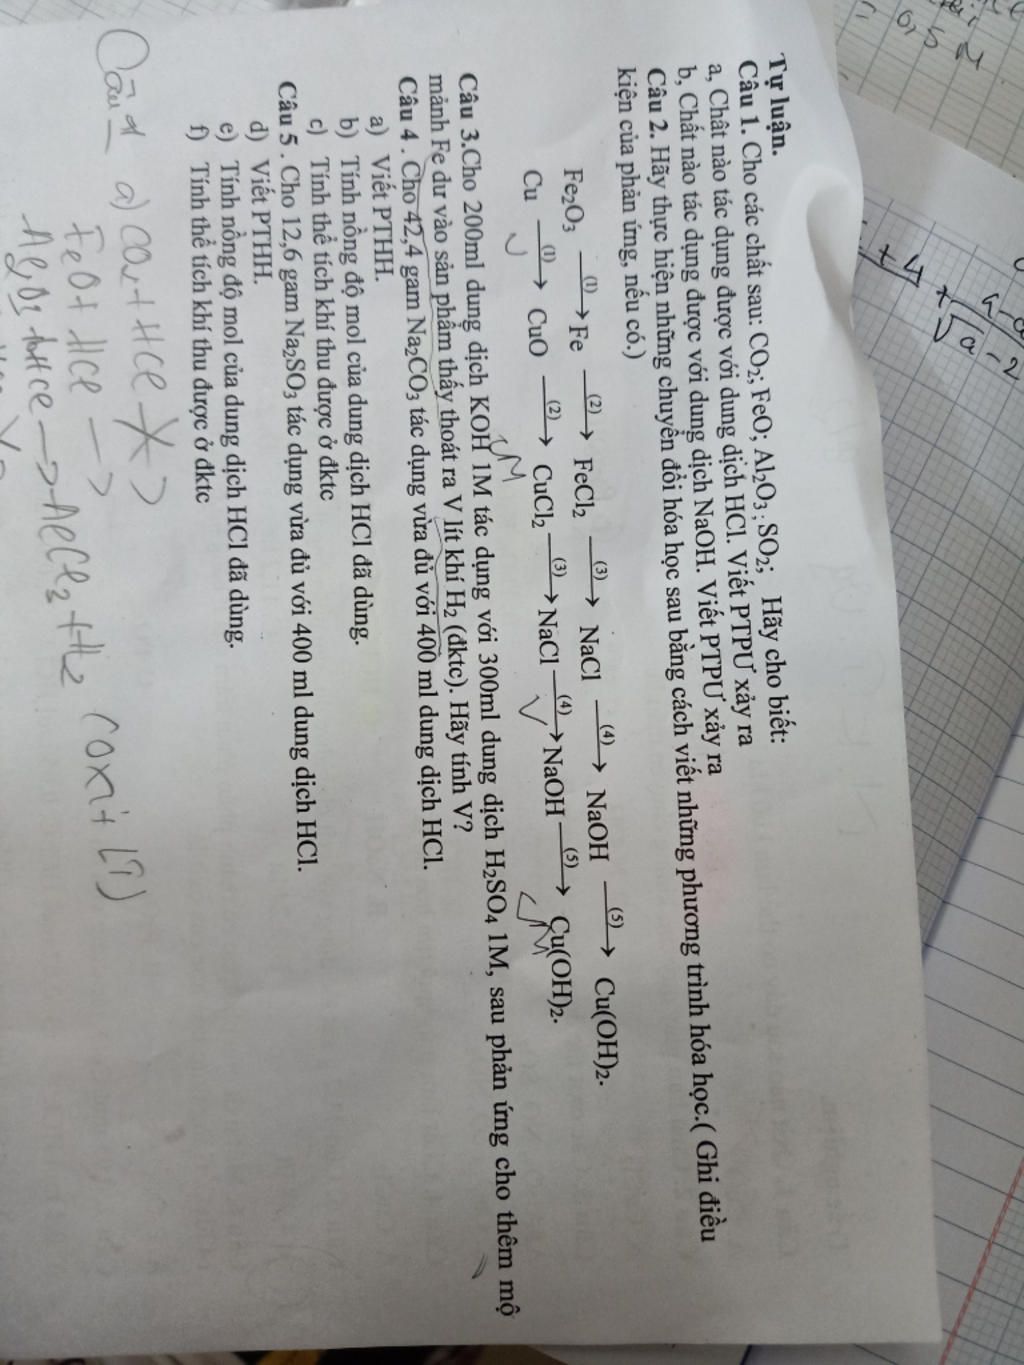 Tự luận.
Câu 1. Cho các chất sau: CO₂; FeO; Al₂O₃; SO₂; Hãy cho biết:
a, Chât nào tác dụng được với dung dịch HCl. Viết PTPƯ xảy ra
b, Chất nào tác dụng được với dung dịch NaOH. Viết PTPƯ xảy ra
Câu 2. Hãy thực hiện những chuyển đổi hóa học sau bằng cách viết những phương trình hóa học.( Ghi điều
kiện của phản ứng, nếu có.)
Fe₂O₃ —(1)→ Fe —(2)→ FeCl₂ —(3)→ NaCl —(4)→ NaOH —(5)→ Cu(OH)₂.
Cu —(1)→ CuO —(2)→ CuCl₂ —(3)→ NaCl —(4)→ NaOH —(5)→ Cu(OH)₂.
Câu 3.Cho 200ml dung dịch KOH 1M tác dụng với 300ml dung dịch H₂SO₄ 1M, sau phản ứng cho thêm mộ
mảnh Fe dư vào sản phẩm thấy thoát ra V lít khí H₂ (đktc). Hãy tính V?
Câu 4 . Cho 42,4 gam Na₂CO₃ tác dụng vừa đủ với 400 ml dung dịch HCl.
a) Viết PTHH.
b) Tính nồng độ mol của dung dịch HCl đã dùng.
c) Tính thể tích khí thu được ở đktc
Câu 5 . Cho 12,6 gam Na₂SO₃ tác dụng vừa đủ với 400 ml dung dịch HCl.
d) Viết PTHH.
e) Tính nồng độ mol của dung dịch HCl đã dùng.
f) Tính thể tích khí thu được ở đktc
Câu 1 a) CO₂ + HCl
FeO + HCl →
HCl → AlCl₃ + H₂ (oxit
0,5 M
+ 4
√a - 2